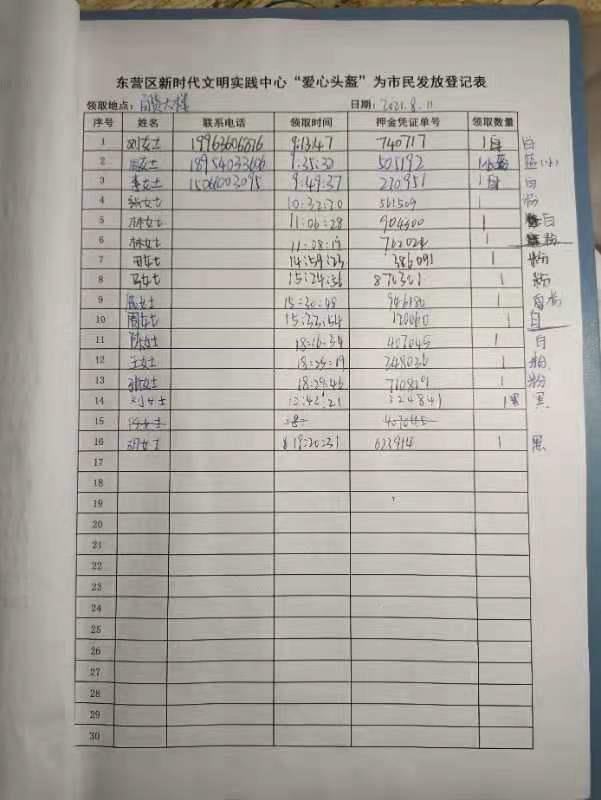 东营区新时代文明实践中心“爱心头盔”为市民发放登记表
领取地点： 日期：2021.8.11
序号 姓名 联系电话 领取时间 押金凭证单号 领取数量
1 刘女士 19963606816 9:13:47 740717 1 白 白
2 女士 9:35:30 505192
3 李女士 15066003095 9:49:37 270951 1 白 白
4 女士 10:32:20 561509 1 粉
5 林女士 11:06:28 904400 1 白
6 林女士 1 粉
7 田女士 14:59:23 386091 1 粉
8 马女士 15:24:56 1 粉
9 女士 15:30:48 1
10 周女士 15:32:54 1 白
11 陈女士 18:16:34 407045 1 白
12 王女士 348036 1 粉
13 张女士 18:29:46 1 粉
14 刘女士 324841 1 黑 黑
15 女士 18: 407045
16 胡女士 19:20:31 623914 1 黑
17
18
19
20
21
22
23
24
25
26
27
28
29
30